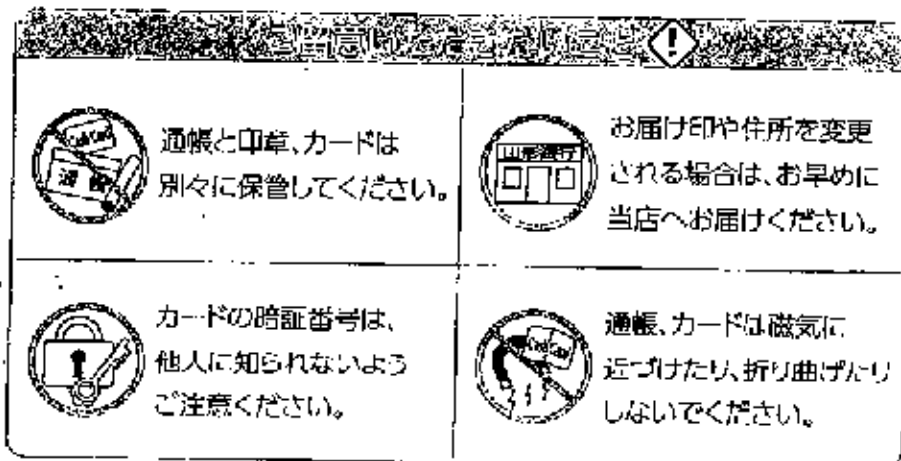 ご留意いただきたいこと
通帳と印章、カードは
別々に保管してください。
山形銀行
お届け印や住所を変更
される場合は、お早めに
当店へお届けください。
カードの暗証番号は、
他人に知られないよう
ご注意ください。
通帳、カードは磁気に
近づけたり、折り曲げたり
しないでください。